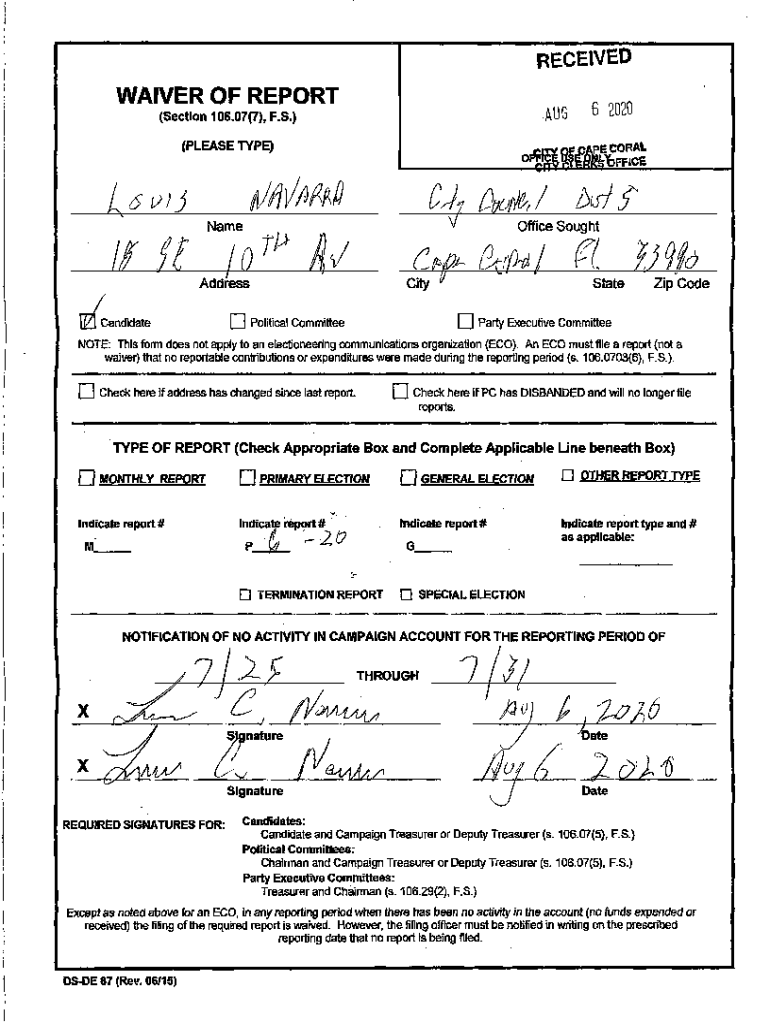 RECEIVED
WAIVER OF REPORT
(Section 106.07(7), F.S.)
AUG 6 2020
(PLEASE TYPE)
CITY OF CAPE CORAL
OFFICE USE ONLY
CITY CLERKS OFFICE
Louis NAVARRA City Council Dist 5
Name Office Sought
18 SE 10TH AV Cape Coral Fl. 33990
Address City State Zip Code
Candidate Political Committee Party Executive Committee
NOTE: This form does not apply to an electioneering communications organization (ECO). An ECO must file a report (not a
waiver) that no reportable contributions or expenditures were made during the reporting period (s. 106.0703(6), F.S.).
Check here if address has changed since last report. Check here if PC has DISBANDED and will no longer file
reports.
TYPE OF REPORT (Check Appropriate Box and Complete Applicable Line beneath Box)
MONTHLY REPORT PRIMARY ELECTION GENERAL ELECTION OTHER REPORT TYPE
Indicate report # Indicate report # Indicate report # Indicate report type and #
as applicable:
M P 6 - 20 G
TERMINATION REPORT SPECIAL ELECTION
NOTIFICATION OF NO ACTIVITY IN CAMPAIGN ACCOUNT FOR THE REPORTING PERIOD OF
7/25 THROUGH 7/31
X C. Aug 6, 2020
Signature Date
X C. Aug 6 2020
Signature Date
REQUIRED SIGNATURES FOR: Candidates:
Candidate and Campaign Treasurer or Deputy Treasurer (s. 106.07(5), F.S.)
Political Committees:
Chairman and Campaign Treasurer or Deputy Treasurer (s. 106.07(5), F.S.)
Party Executive Committees:
Treasurer and Chairman (s. 106.29(2), F.S.)
Except as noted above for an ECO, in any reporting period when there has been no activity in the account (no funds expended or
received) the filing of the required report is waived. However, the filing officer must be notified in writing on the prescribed
reporting date that no report is being filed.
DS-DE 87 (Rev. 06/15)